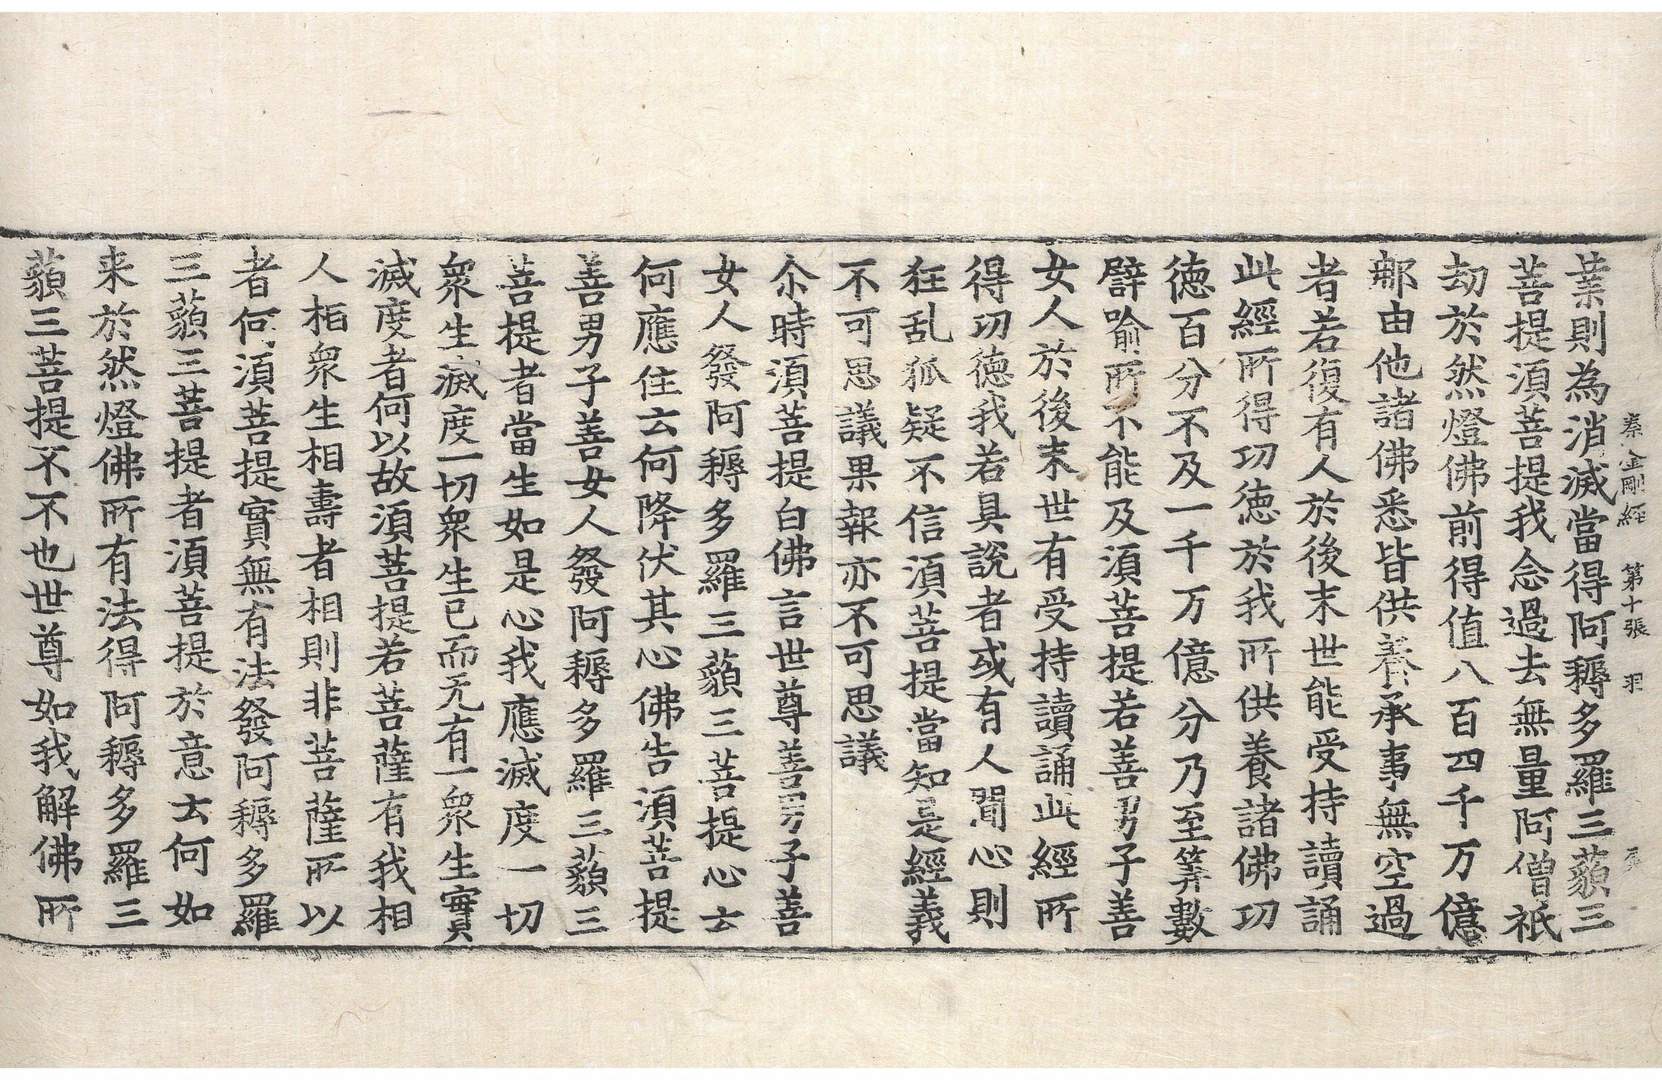 秦金剛經 第十張 羽
業則為消滅當得阿耨多羅三藐三
菩提須菩提我念過去無量阿僧祇
劫於然燈佛前得值八百四千万億
那由他諸佛悉皆供養承事無空過
者若復有人於後末世能受持讀誦
此經所得功德於我所供養諸佛功
德百分不及一千万億分乃至筭數
譬喻所不能及須菩提若善男子善
女人於後末世有受持讀誦此經所
得功德我若具說者或有人聞心則
狂乱狐疑不信須菩提當知是經義
不可思議果報亦不可思議
尒時須菩提白佛言世尊善男子善
女人發阿耨多羅三藐三菩提心云
何應住云何降伏其心佛告須菩提
善男子善女人發阿耨多羅三藐三
菩提者當生如是心我應滅度一切
衆生滅度一切衆生已而无有一衆生實
滅度者何以故須菩提若菩薩有我相
人相衆生相壽者相則非菩薩所以
者何須菩提實無有法發阿耨多羅
三藐三菩提者須菩提於意云何如
来於然燈佛所有法得阿耨多羅三
藐三菩提不不也世尊如我解佛所